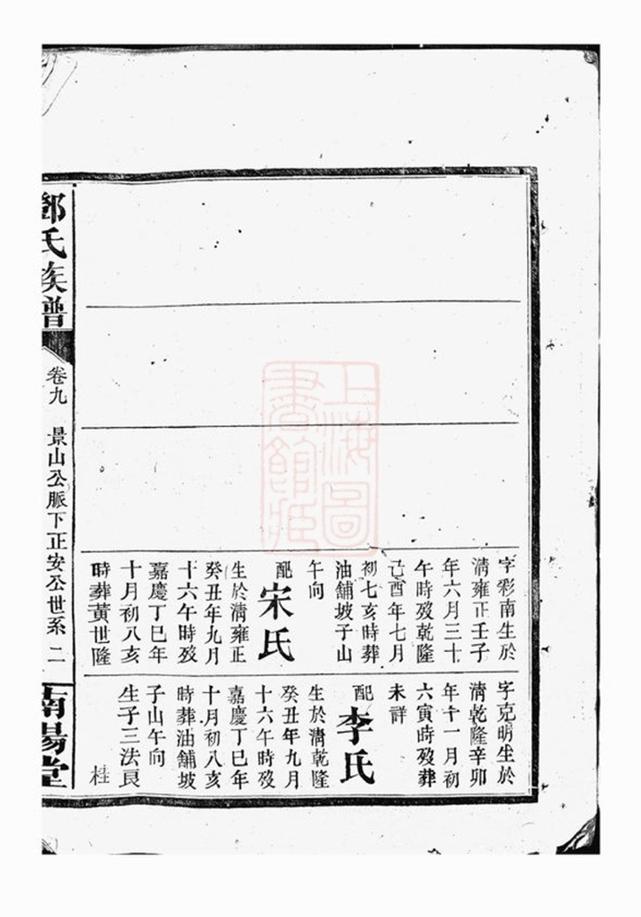 字彩南生於
清雍正壬子
年六月三十
午時歿乾隆
己酉年七月
初七亥時葬
油舖坡子山
午向
配宋氏
生於清雍正
癸丑年九月
十六午時歿
嘉慶丁巳年
十月初八亥
時葬黃世隆
字克明生於
清乾隆辛卯
年十一月初
六寅時歿葬
未詳
配李氏
生於清乾隆
癸丑年九月
十六午時歿
嘉慶丁巳年
十月初八亥
時葬油舖坡
子山午向
生子三法良
桂
鄧氏族譜
卷九 景山公脈下正安公世系 二
南陽堂
上海圖書館藏